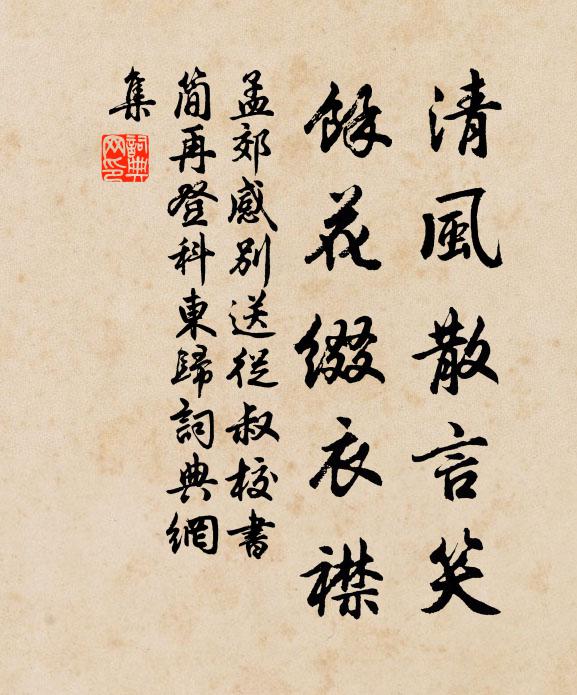 清風散言笑
餘花綴衣襟
孟郊感別送從叔校書
簡再登科東歸詞典網
集
詞典網印